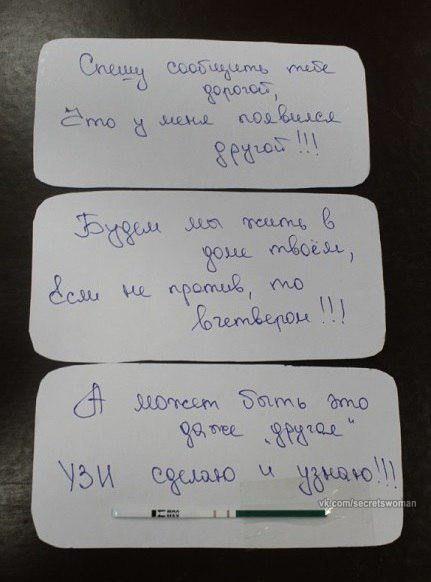 Спешу сообщить тебе
дорогой,
Что у меня появился
другой!!!
Будем мы жить в
доме твоём,
Если не против, то
вчетвером!!!
А может быть это
даже „другая"
УЗИ сделаю и узнаю!!!
vk.com/secretswoman